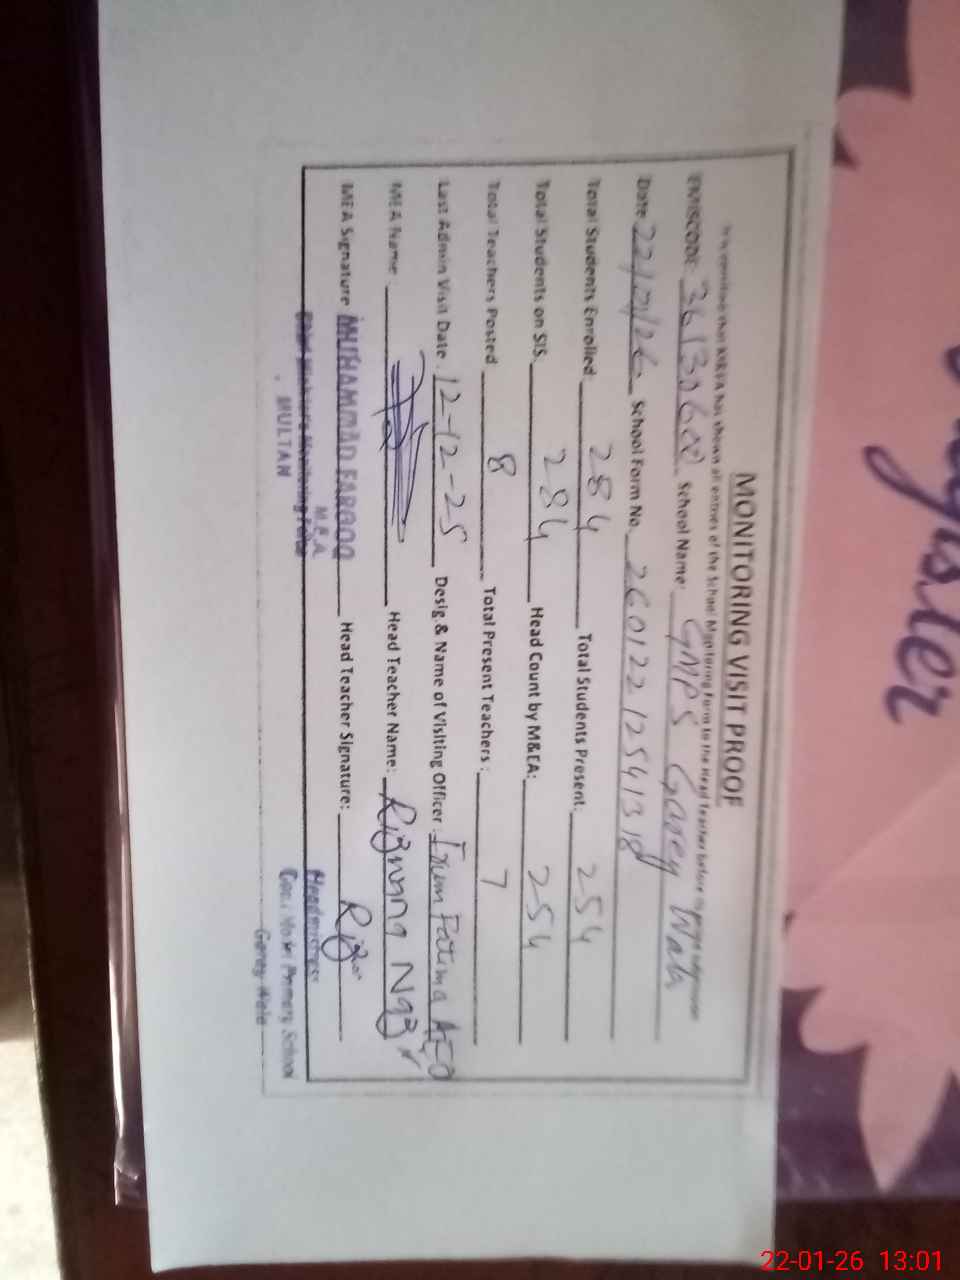 MONITORING VISIT PROOF
It is certified that M&EA has shown all entries of the School Monitoring Form to the Head Teacher before
EMISCODE: School Name: GMPS Garey Wala
Date 22/01/26 School Form No. 260122125413
Total Students Enrolled: 284 Total Students Present: 254
Total Students on SIS. 284 Head Count by M&EA: 254
Total Teachers Posted 8 Total Present Teachers: 7
Last Admin Visit Date. 12-12-25 Desig.& Name of Visiting Officer. Fatima AEO
MEA Name Head Teacher Name: Rizwana Nazir
MEA Signature MUHAMMAD FAROOQ Head Teacher Signature:
M.E.A
MULTAN
Headmistress
Govt. Primary School
Garey Wala
22-01-26 13:01